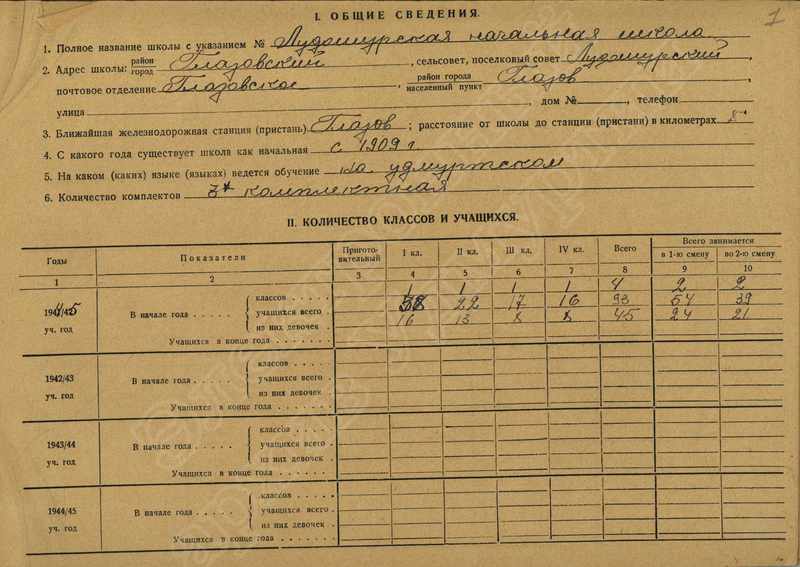 1
I. ОБЩИЕ СВЕДЕНИЯ.
1. Полное название школы с указанием № Лудошурская начальная школа
2. Адрес школы: район город Глазовский, сельсовет, поселковый совет Лудошурский,
почтовое отделение Глазовское, район города населенный пункт Глазов
улица , дом № , телефон
3. Ближайшая железнодорожная станция (пристань) Глазов; расстояние от школы до станции (пристани) в километрах 8
4. С какого года существует школа как начальная с 1909 г
5. На каком (каких) языке (языках) ведется обучение на удмуртском
6. Количество комплектов 3х комплектная
II. КОЛИЧЕСТВО КЛАССОВ И УЧАЩИХСЯ.
Годы Показатели Приготовительный I кл. II кл. III кл. IV кл. Всего Всего занимается
в 1-ю смену во 2-ю смену
1 2 3 4 5 6 7 8 9 10
классов . . . . . 1 1 1 1 4 2 2
В начале года . . . . . учащихся всего . 38 22 17 16 93 54 39
уч. год из них девочек . 16 13 8 8 45 24 21
Учащихся в конце года . . . . . . .
классов . . . . .
1942/43 В начале года . . . . . учащихся всего .
уч. год из них девочек .
Учащихся в конце года . . . . . . .
классов . . . . .
1943/44 В начале года . . . . . учащихся всего .
уч. год из них девочек .
Учащихся в конце года . . . . . . .
классов . . . . .
1944/45 В начале года . . . . . учащихся всего .
уч. год из них девочек .
Учащихся в конце года . . . . . . .